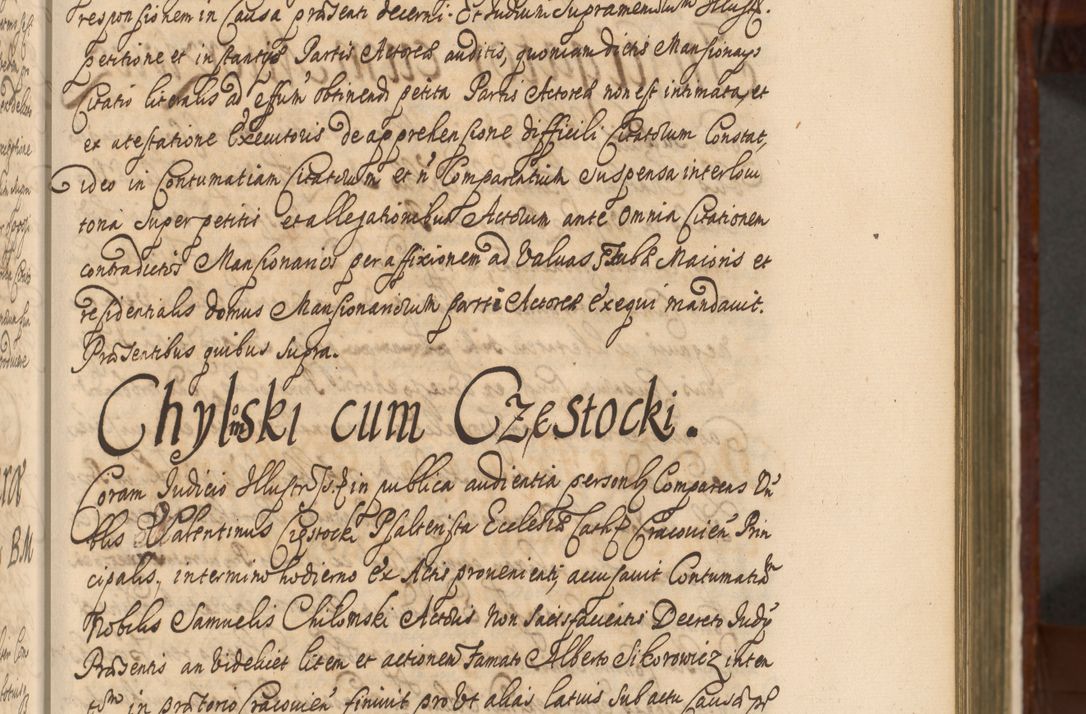 responsionem in Causa præsenti decerni. Et Iudicium Supramentum Illustr.
petitione et instantiis Partis Actoreæ auditis, quoniam dictis Mansionar
Citatio literalis ad effūm obtinendi petita Partis Actoreæ non est intimata, et
ex atestatione Executoris de apprehensione difficili Citatorum Constat,
ideo in Contumatiam Citatorum et ń Comparentium Suspensa interlocu
toria Super petitis et allegationibus Actorum ante omnia Citationem
contradictis Mansionarios per affixionem ad Valvas Maioris et
residentialis domus Mansionariorum parti Actoreæ exequi mandavit.
Præsentibus quibus supra.
Chylinski cum Częstocki.
Coram Iudicio Illustr in publica audientia personlr Comparens Vn
blis Valentinus Częstocki Psalterista Ecclesiæ Cathr Cracovień Prin
cipalis, in termino hodierno ex Actis provenienti, accusavit Contumatiam
Nobilis Samuelis Chilomski Actoris non Satisfacientis Decreto Iudy
Præsentis an videlicet litem et actionem Famato Alberto Sikorowicz inten
tam in prætorio Cracovień finivit prout alias latius Sub actu Causæ pr